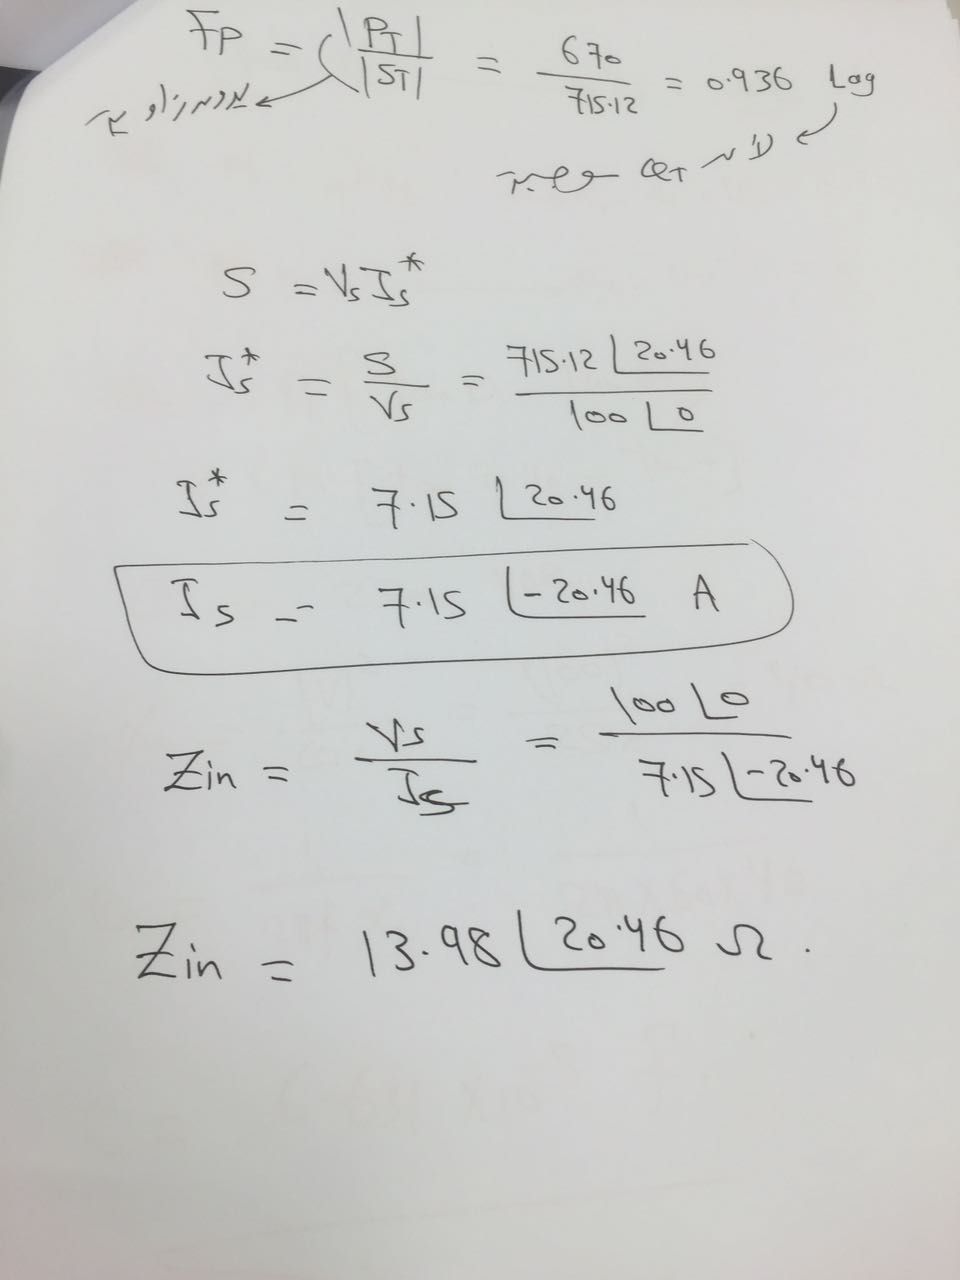 Fp = |PT| / |ST| = 670 / 715.12 = 0.936 Lag
لأن QT موجبة
S = Vs Is*
Is* = S / Vs = 715.12 ∠20.46 / 100 ∠0
Is* = 7.15 ∠20.46
Is = 7.15 ∠-20.46 A
Zin = Vs / Is = 100 ∠0 / 7.15 ∠-20.46
Zin = 13.98 ∠20.46 Ω.